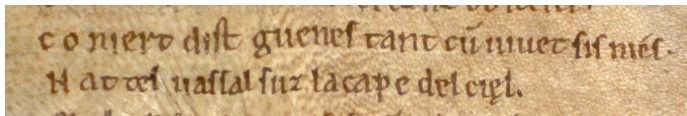 co niert dist guenes tant cū uiuet sis niés.
N at tel uassal suz la cape del ciel.